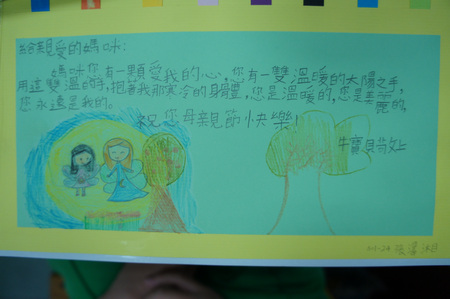 給親愛的媽咪:
媽咪你有一顆愛我的心,您有一雙溫暖的太陽之手,
用這雙溫的手,抱著我那寒冷的身體,您是溫暖的,您是美麗的,
您永遠是我的。
祝您母親節快樂!
牛寶貝芶文上